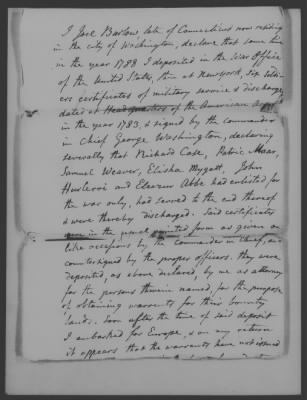 I Joel Barlow, late of Connecticut now residing
in the city of Washington, declare that some time
in the year 1788 I deposited in the War Office
of the United States, then at Newyork, six soldi-
ers certificates of military service & discharge
dated at Head Quarters of the American
in the year 1783, & signed by the commander
in Chief George Washington, declaring
severally that Richard Case, Patric Maar,
Samuel Weaver, Elisha Mygatt, John
and Eleazur Abbe had enlisted for
the war only, had served to the end thereof
& were thereby discharged. Said certificates
were in the usual printed form as given on
like occasions by the commander in chief, and
countersigned by the proper officers. they were
deposited, as above declared, by me as attorney
for the persons therein named, for the purpose
of obtaining warrants for their bounty
lands. Soon after the time of said deposit
I embarked for Europe, & on my return
it appears that the warrants have not issued